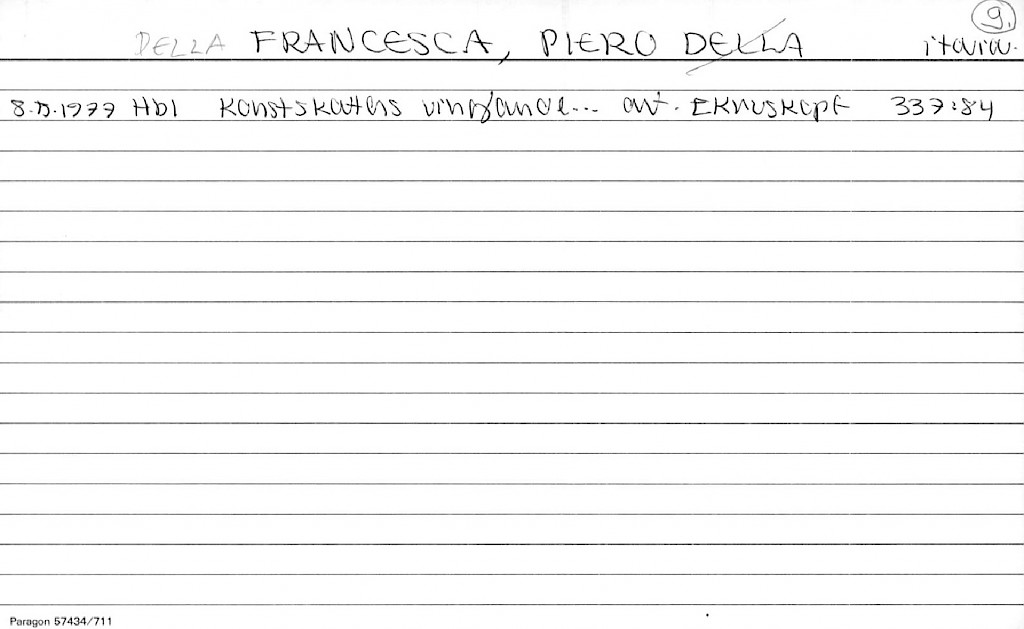 9.
DELLA FRANCESCA, PIERO DELLA italia.
8.5.1977 Hbl Konstskattens vinglande... art. E.Kruskopf 337:84
Paragon 57434/711